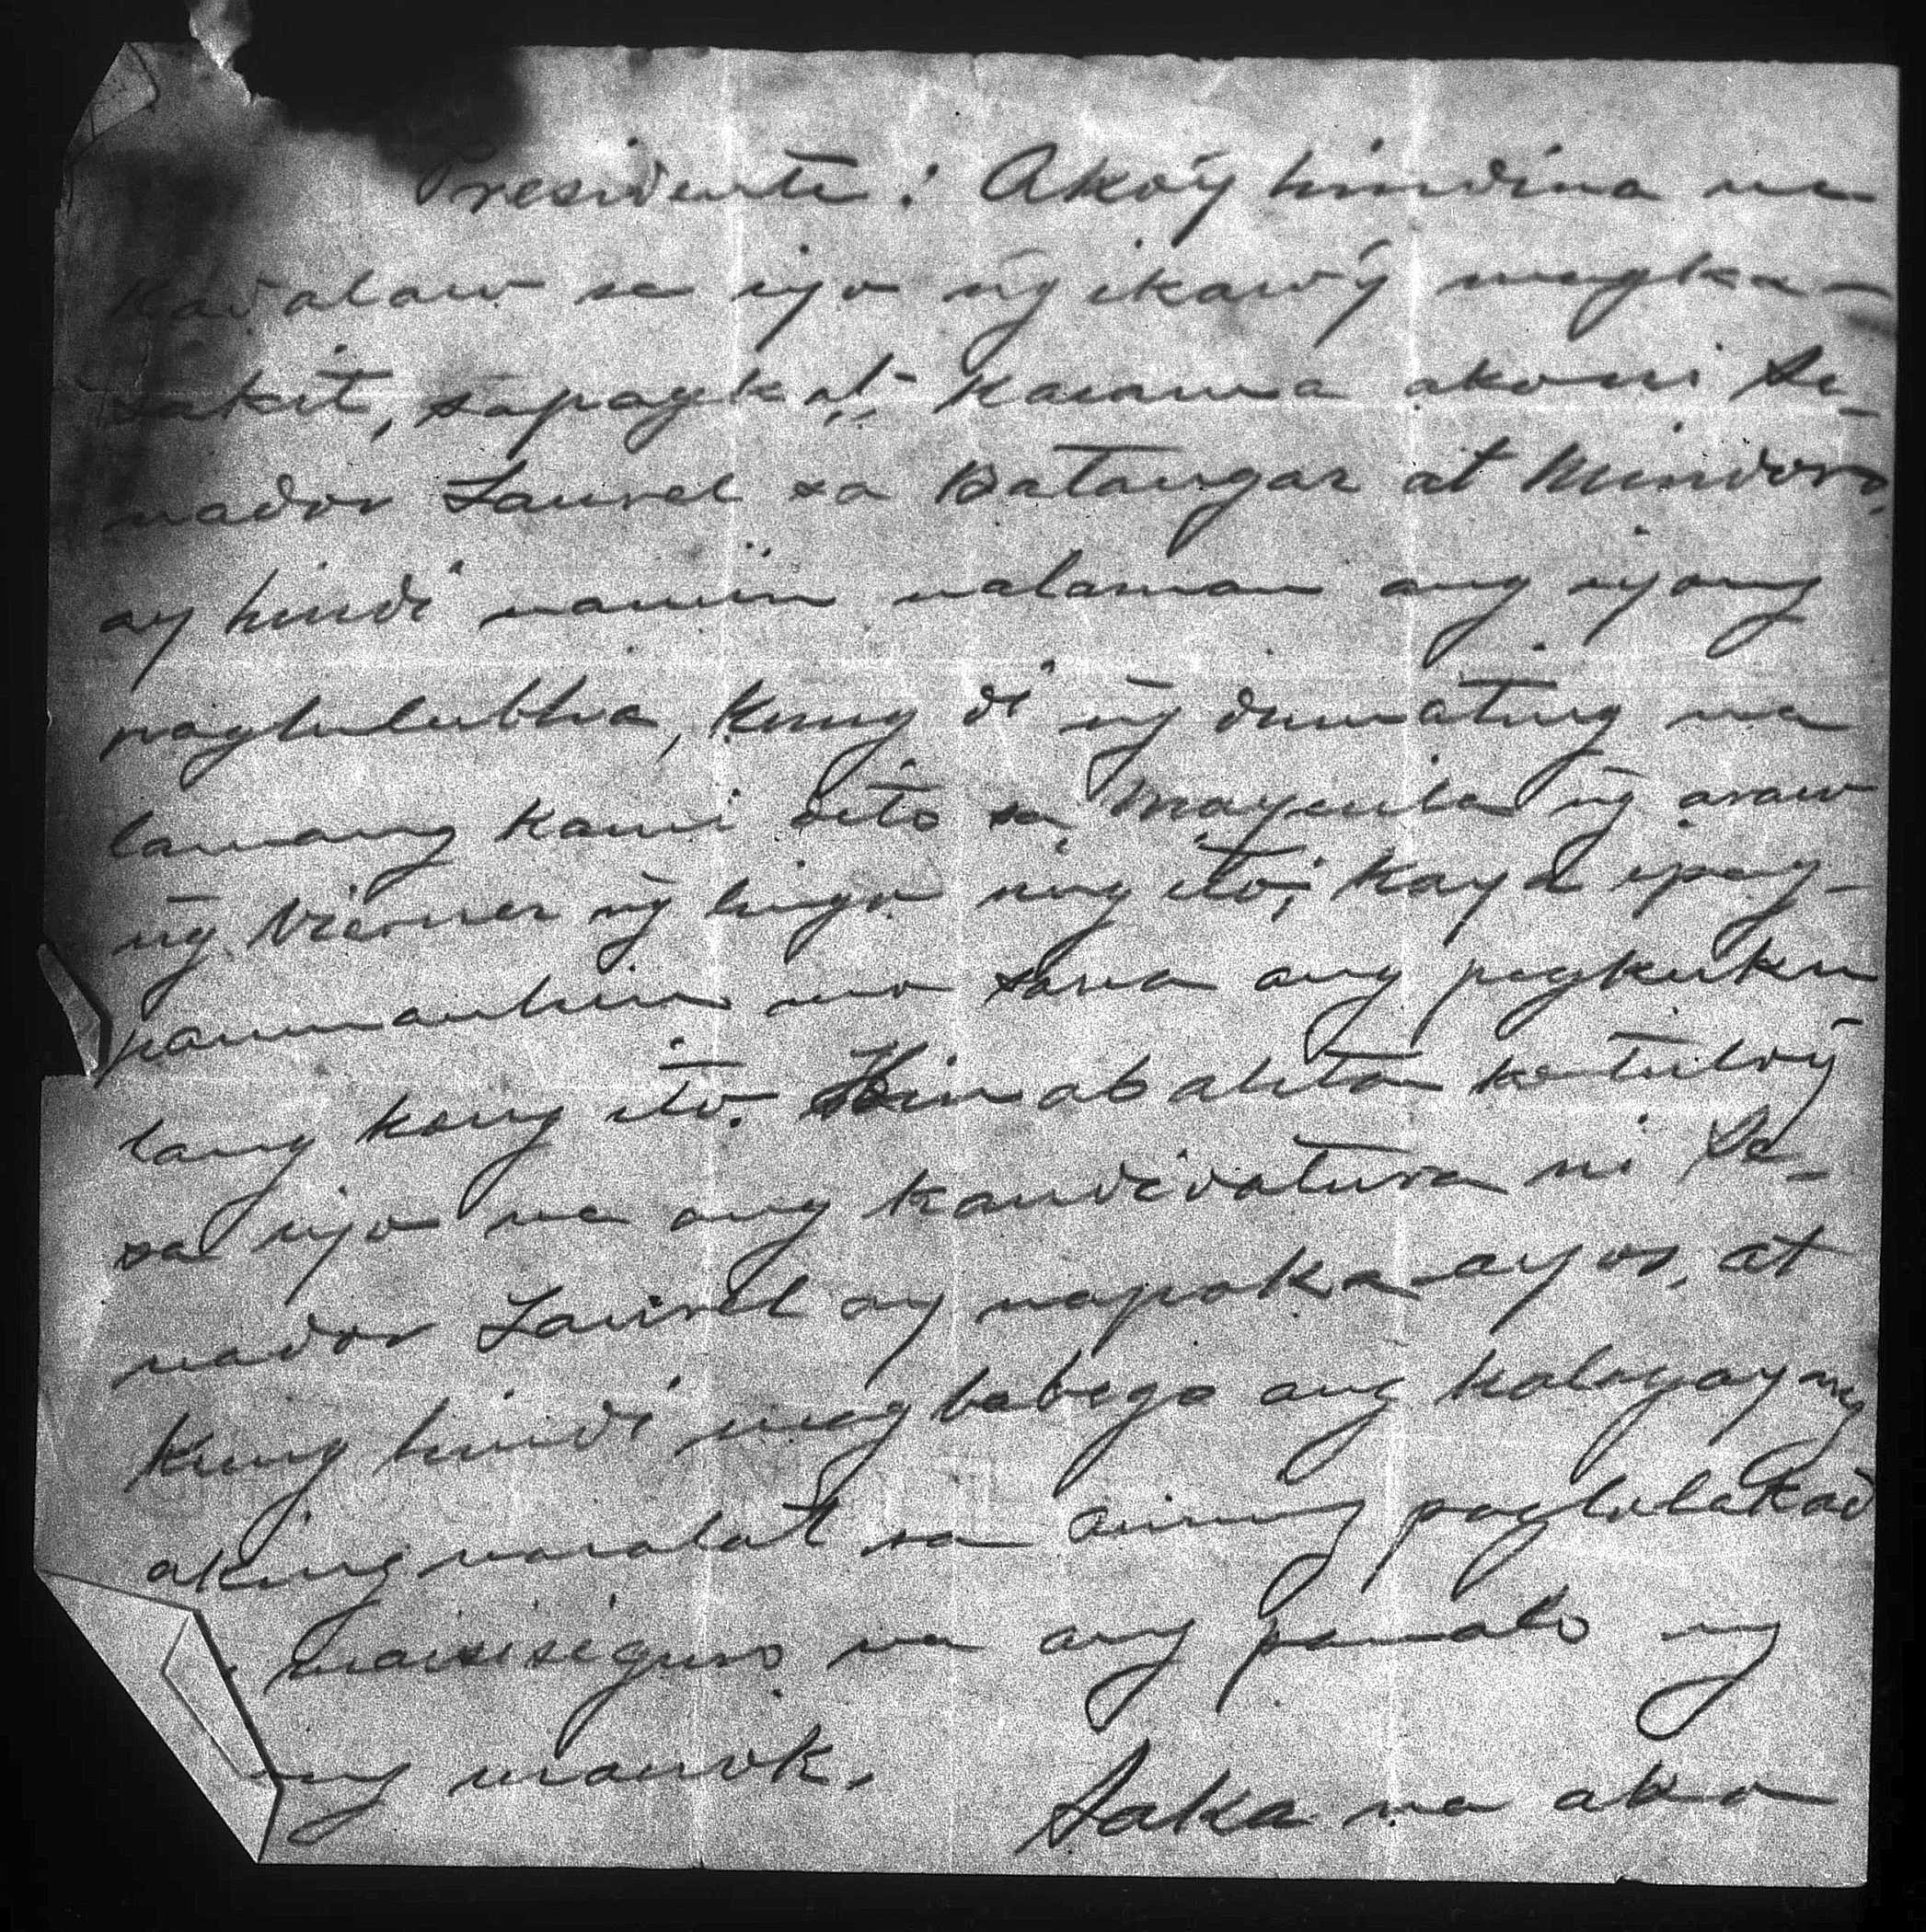 Presidente: Ako'y hindina na
kadalaw sa iyo n͠g ikaw'y magka-
sakit, sapagka't kasama ako ni Se-
nador Laurel sa Batangas at Mindoro,
ay hindi namin nalaman ang iyong
paglulubha, kung di n͠g dumating na
lamang kami dito sa Maynila n͠g araw
n͠g Viernes n͠g lingo ng ito; kaya ipag-
paumanhin mo sana ang pagkuku
lang kong ito. Kinabalita ko tuloy
sa iyo na ang kandidatura ni Se-
nador Laurel ay napaka ayos, at
kung hindi magbabago ang kalagay ng
aking naralat sa aming paglalakad
maisisiguro na ang panalo ng
ng manok.
Saka na ako